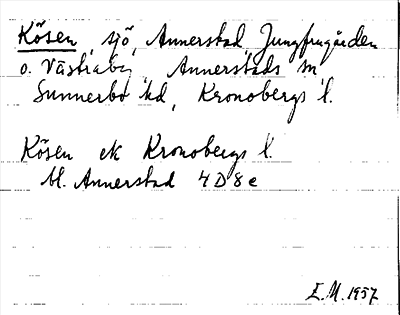 Kösen, sjö, Annerstad, Jungfrugården
o. Västraby, Annerstads sn,
Sunnerbo hd, Kronobergs l.
Kösen ek Kronobergs l.
bl. Annerstad 4D8e
E.M. 1957